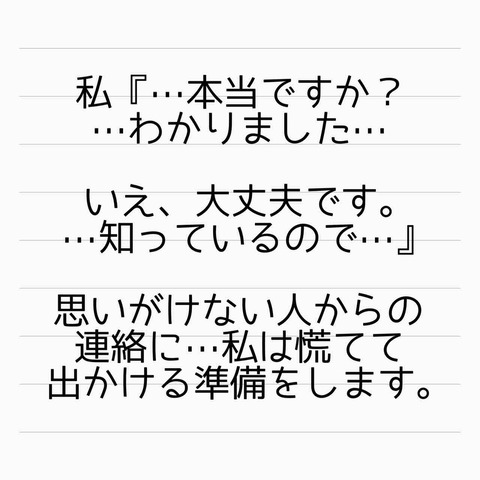 私『…本当ですか？
…わかりました…
いえ、大丈夫です。
…知っているので…』
思いがけない人からの
連絡に…私は慌てて
出かける準備をします。